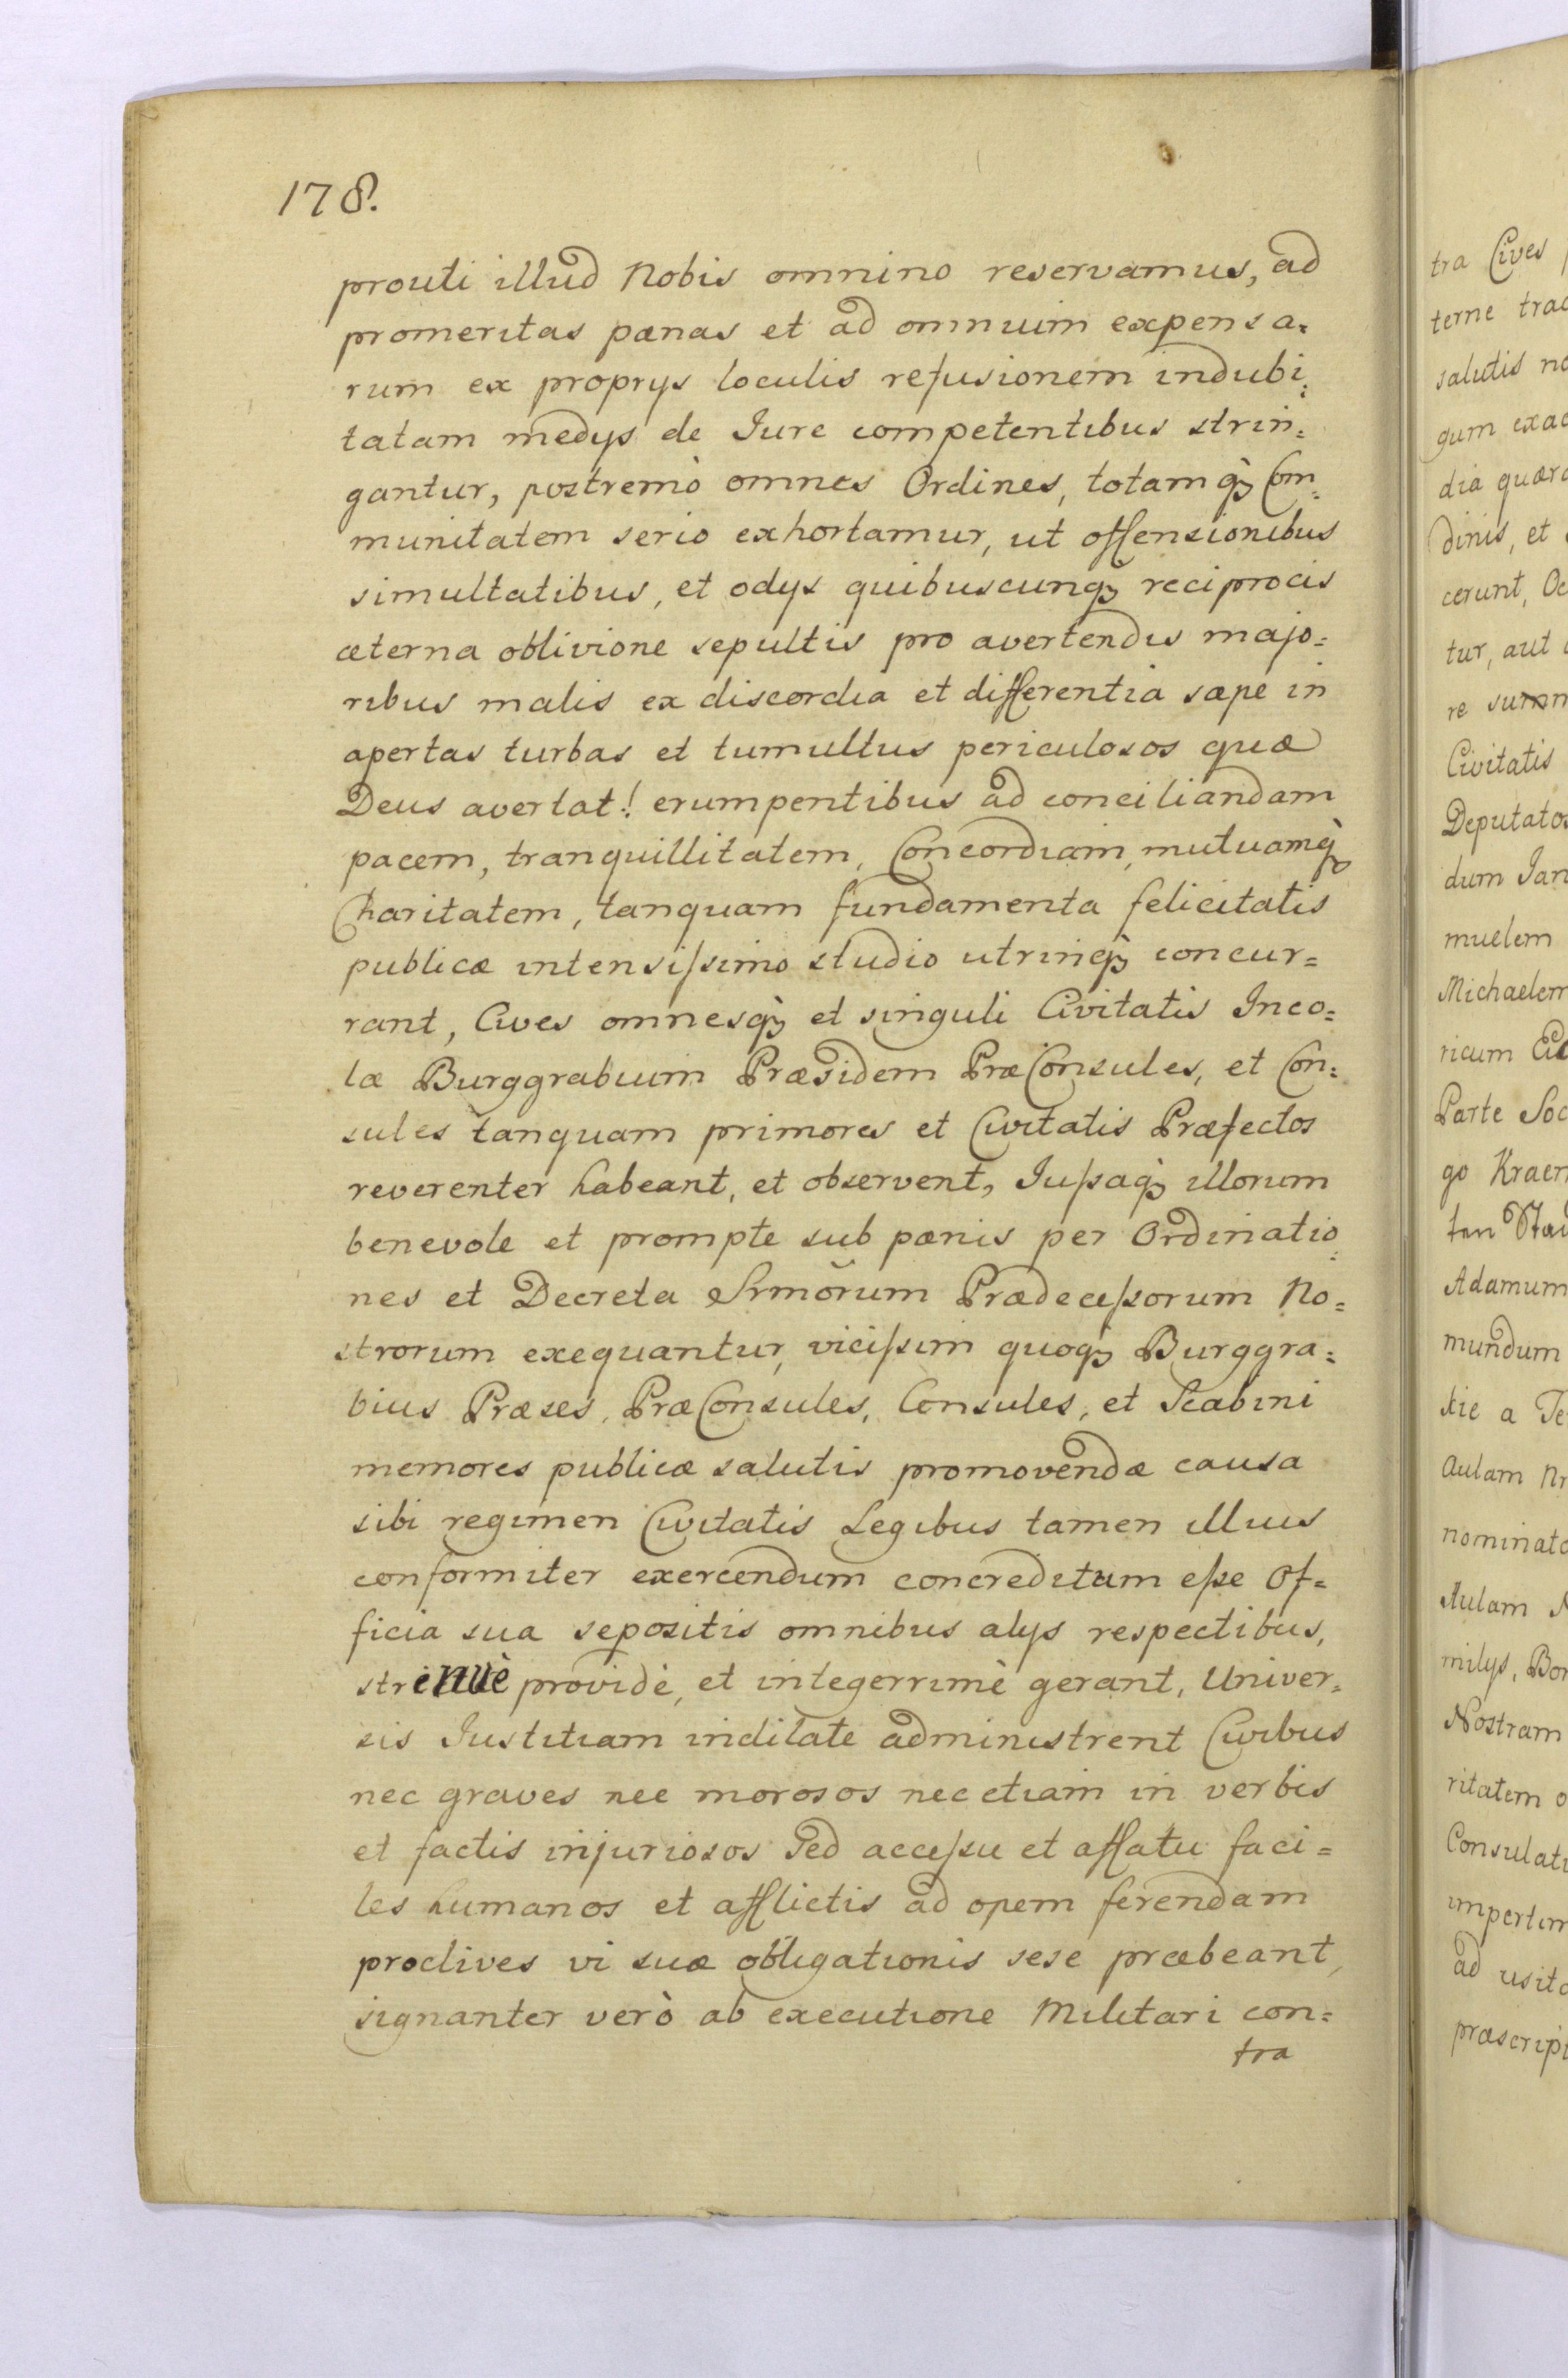 178.
prouti illud Nobis omnino reservamus, ad
promeritas pænas et ad omnium expensa=
rum ex proprys loculis refusionem indubi=
tatam medys de Iure competentibus strin=
gantur, postremò omnes Ordines, totamq₃ Com=
munitatem serio exhortamur, ut offensionibus
simultatibus, et odys quibuscunq₃ reciprocis
æterna oblivione sepultis pro avertendis majo=
ribus malis ex discordia et differentia sæpe in
apertas turbas et tumultus periculosos quæ
Deus avertat! erumpentibus ad conciliandam
pacem, tranquillitatem, Concordiam, mutuamq₃
Charitatem, tanquam fundamenta felicitatis
publicæ intensiſsimo studio utrinq₃ concur=
rant, Cives omnesq₃ et singuli Civitatis Inco=
læ Burggrabium Præsidem PræConsules, et Con=
sules tanquam primores et Civitatis Præfectos
reverenter habeant, et observent, Iuſsaq₃ illorum
benevole et prompte sub pænis per Ordinatio=
nes et Decreta Srmõrum Prædeceſsorum No=
strorum exequantur, viciſsim quoq₃ Burggra=
bius Præses, PræConsules, Consules, et Scabini
memores publicæ salutis promovendæ causa
sibi regimen Civitatis Legibus tamen illius
conformiter exercendum concreditum eſse Of=
ficia sua sepositis omnibus alys respectibus,
strenuè providè, et integerrimè gerant, Univer=
sis Iustitiam indilate administrent Civibus
nec graves nec morosos nec etiam in verbis
et factis injuriosos Sed acceſsu et affatu faci=
les humanos et afflictis ad opem ferendam
proclives vi suæ obligationis sese præbeant,
signanter verò ab executione Militari con=
tra
tra Cives
terne
salutis
gum
dia
dinis, et
cerunt,
tur, aut
re
Civitatis
Deputatos
dum
muelem
Michaelem
ricum
Parte
go
ten
Adamum
mundum
xie a
Aulam
Aulam
milys,
Nostram
ritatem
ad